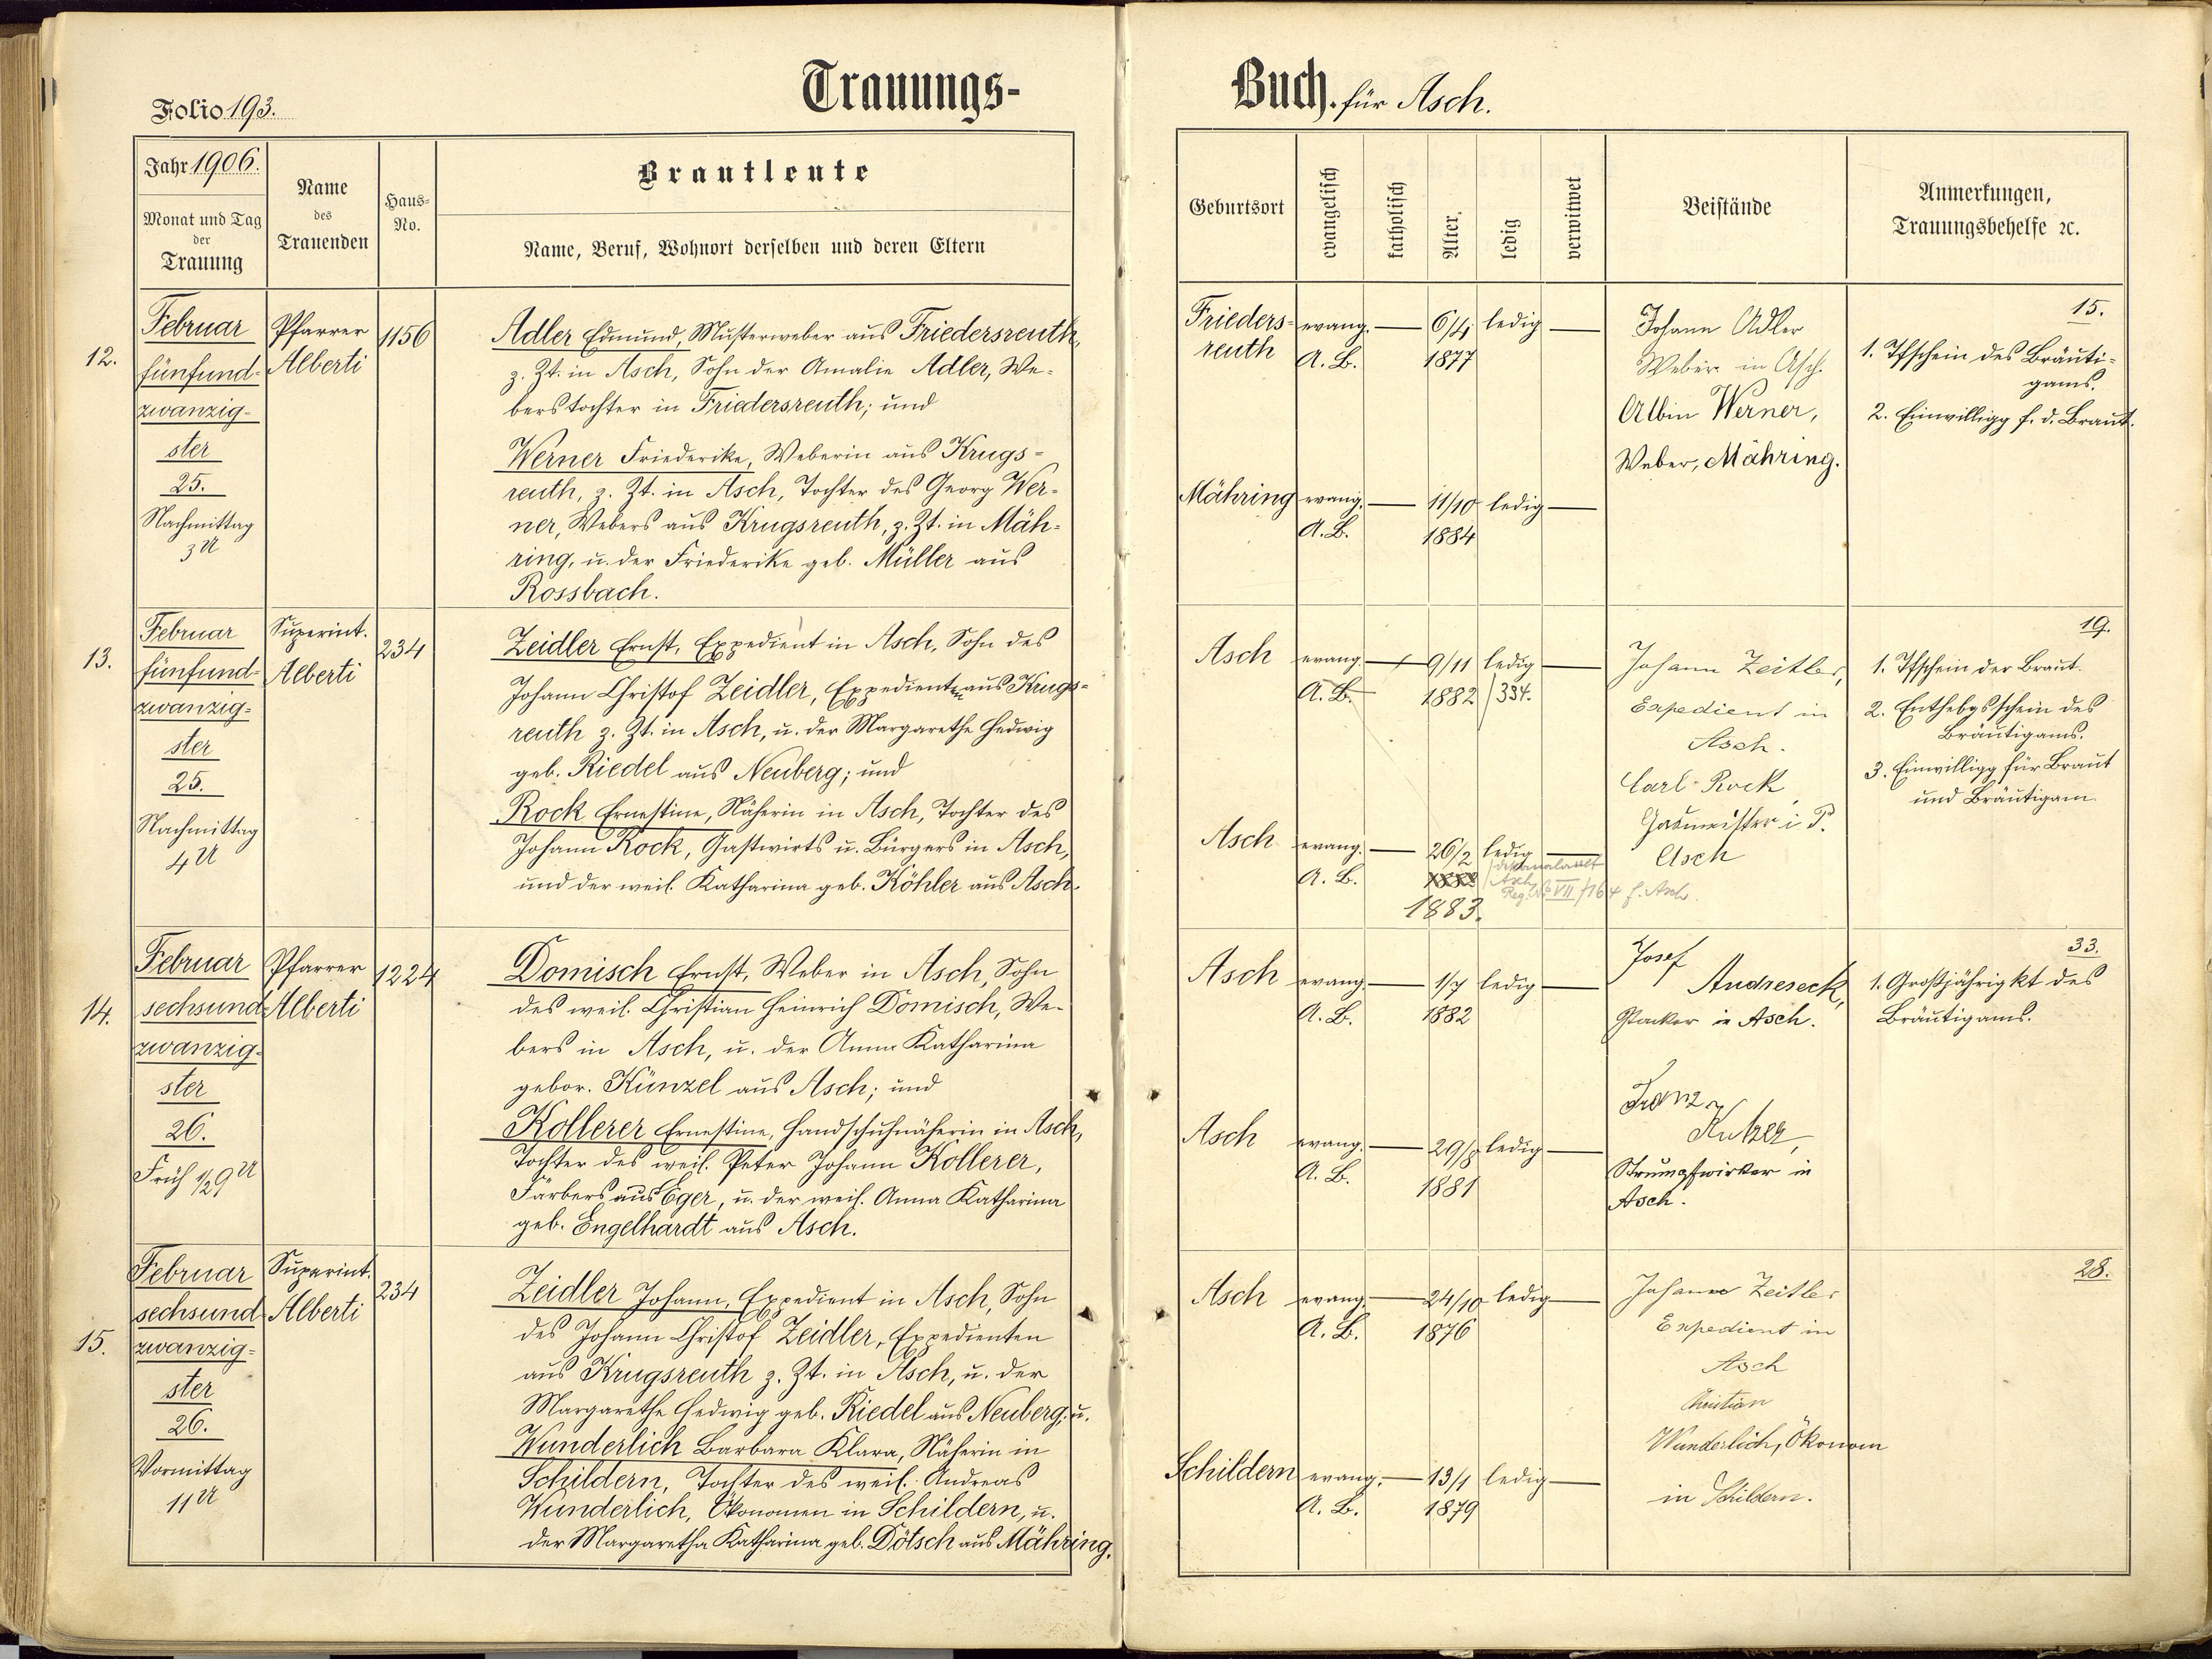 Folio 193.
Trauungs-
Jahr 1906.
Monat und Tag
der
Trauung
Name
des
Trauenden
Haus-
No.
Brautleute
Name, Beruf, Wohnort derselben und deren Eltern
12.
Februar
fünfund-
zwanzig-
ster
25.
Nachmittag
3 U
Pfarrer
Alberti
1156
Adler Edmund, Musterweber aus Friedersreuth,
z. Zt. in Asch, Sohn der Amalie Adler, We-
berstochter in Friedersreuth; und
Werner Friederike, Weberin aus Krugs-
reuth, z. Zt. in Asch, Tochter des Georg Wer-
ner, Webers aus Krugsreuth, z. Zt. in Mäh-
ring, u. der Friederike geb. Müller aus
Rossbach.
13.
Februar
fünfund-
zwanzig-
ster
25.
Nachmittag
4 U
Superint.
Alberti
234
Zeidler Ernst, Expedient in Asch, Sohn des
Johann Christof Zeidler, Expedienten aus Krugs-
reuth z. Zt. in Asch, u. der Margarethe Hedwig
geb. Riedel aus Neuberg; und
Rock Ernestine, Näherin in Asch, Tochter des
Johann Rock, Gastwirts u. Bürgers in Asch,
und der weil. Katharina geb. Köhler aus Asch.
14.
Februar
sechsund-
zwanzig-
ster
26.
Früh 1/2 9 U
Pfarrer
Alberti
1224
Domisch Ernst, Weber in Asch, Sohn
des weil. Christian Heinrich Domisch, We-
bers in Asch, u. der Anna Katharina
gebor. Künzel aus Asch; und
Kollerer Ernestine, Handschuhnäherin in Asch,
Tochter des weil. Peter Johann Kollerer,
Färbers aus Eger, u. der weil. Anna Katharina
geb. Engelhardt aus Asch.
15.
Februar
sechsund-
zwanzig-
ster
26.
Vormittag
11 U
Superint.
Alberti
234
Zeidler Johann, Expedient in Asch, Sohn
des Johann Christof Zeidler, Expedienten
aus Krugsreuth z. Zt. in Asch, u. der
Margarethe Hedwig geb. Riedel aus Neuberg; u.
Wunderlich Barbara Klara, Näherin in
Schildern, Tochter des weil. Andreas
Wunderlich, Ökonomen in Schildern, u.
der Margaretha Katharina geb. Dötsch aus Mähring.
Buch. für Asch.
Geburtsort
evangelisch
katholisch
Alter.
ledig
verwitwet
Beistände
Anmerkungen,
Trauungsbehelfe 2c.
Frieders-
reuth
evang.
A. B.
6/4
1877
ledig
Johann Adler
Weber in Asch.
Albin Werner,
Weber, Mähring.
15.
1. Tfschein des Bräuti-
gams.
2. Einwilligg f. d. Braut.
Mähring
evang.
A. B.
11/10
1884
ledig
Asch
evang.
A. B.
9/11
1882
ledig
334.
Johann Zeitler,
Expedient in
Asch.
Carl Rock
Gasmeister i. P.
Asch
19.
1. Tfschein der Braut.
2. Enthebgsschein des
Bräutigams.
3. Einwilligg für Braut
und Bräutigam
Asch
evang.
A. B.
26/2
1883.
ledig
Asch
Reg. No VII /164 f. Asch.
Asch
evang.
A. B.
1/7
1882
ledig
Josef
Andreseck,
Packer in Asch.
Franz
Strumpfwirker in
Asch.
33.
1. Großjährigkt des
Bräutigams.
Asch
evang.
A. B.
29/8
1881
ledig
Asch
evang.
A. B.
24/10
1876
ledig
Johann Zeitler
Expedient in
Asch
Christian
Wunderlich, Ökonom
in Schildern.
28.
Schildern
evang.
A. B.
13/1
1879
ledig